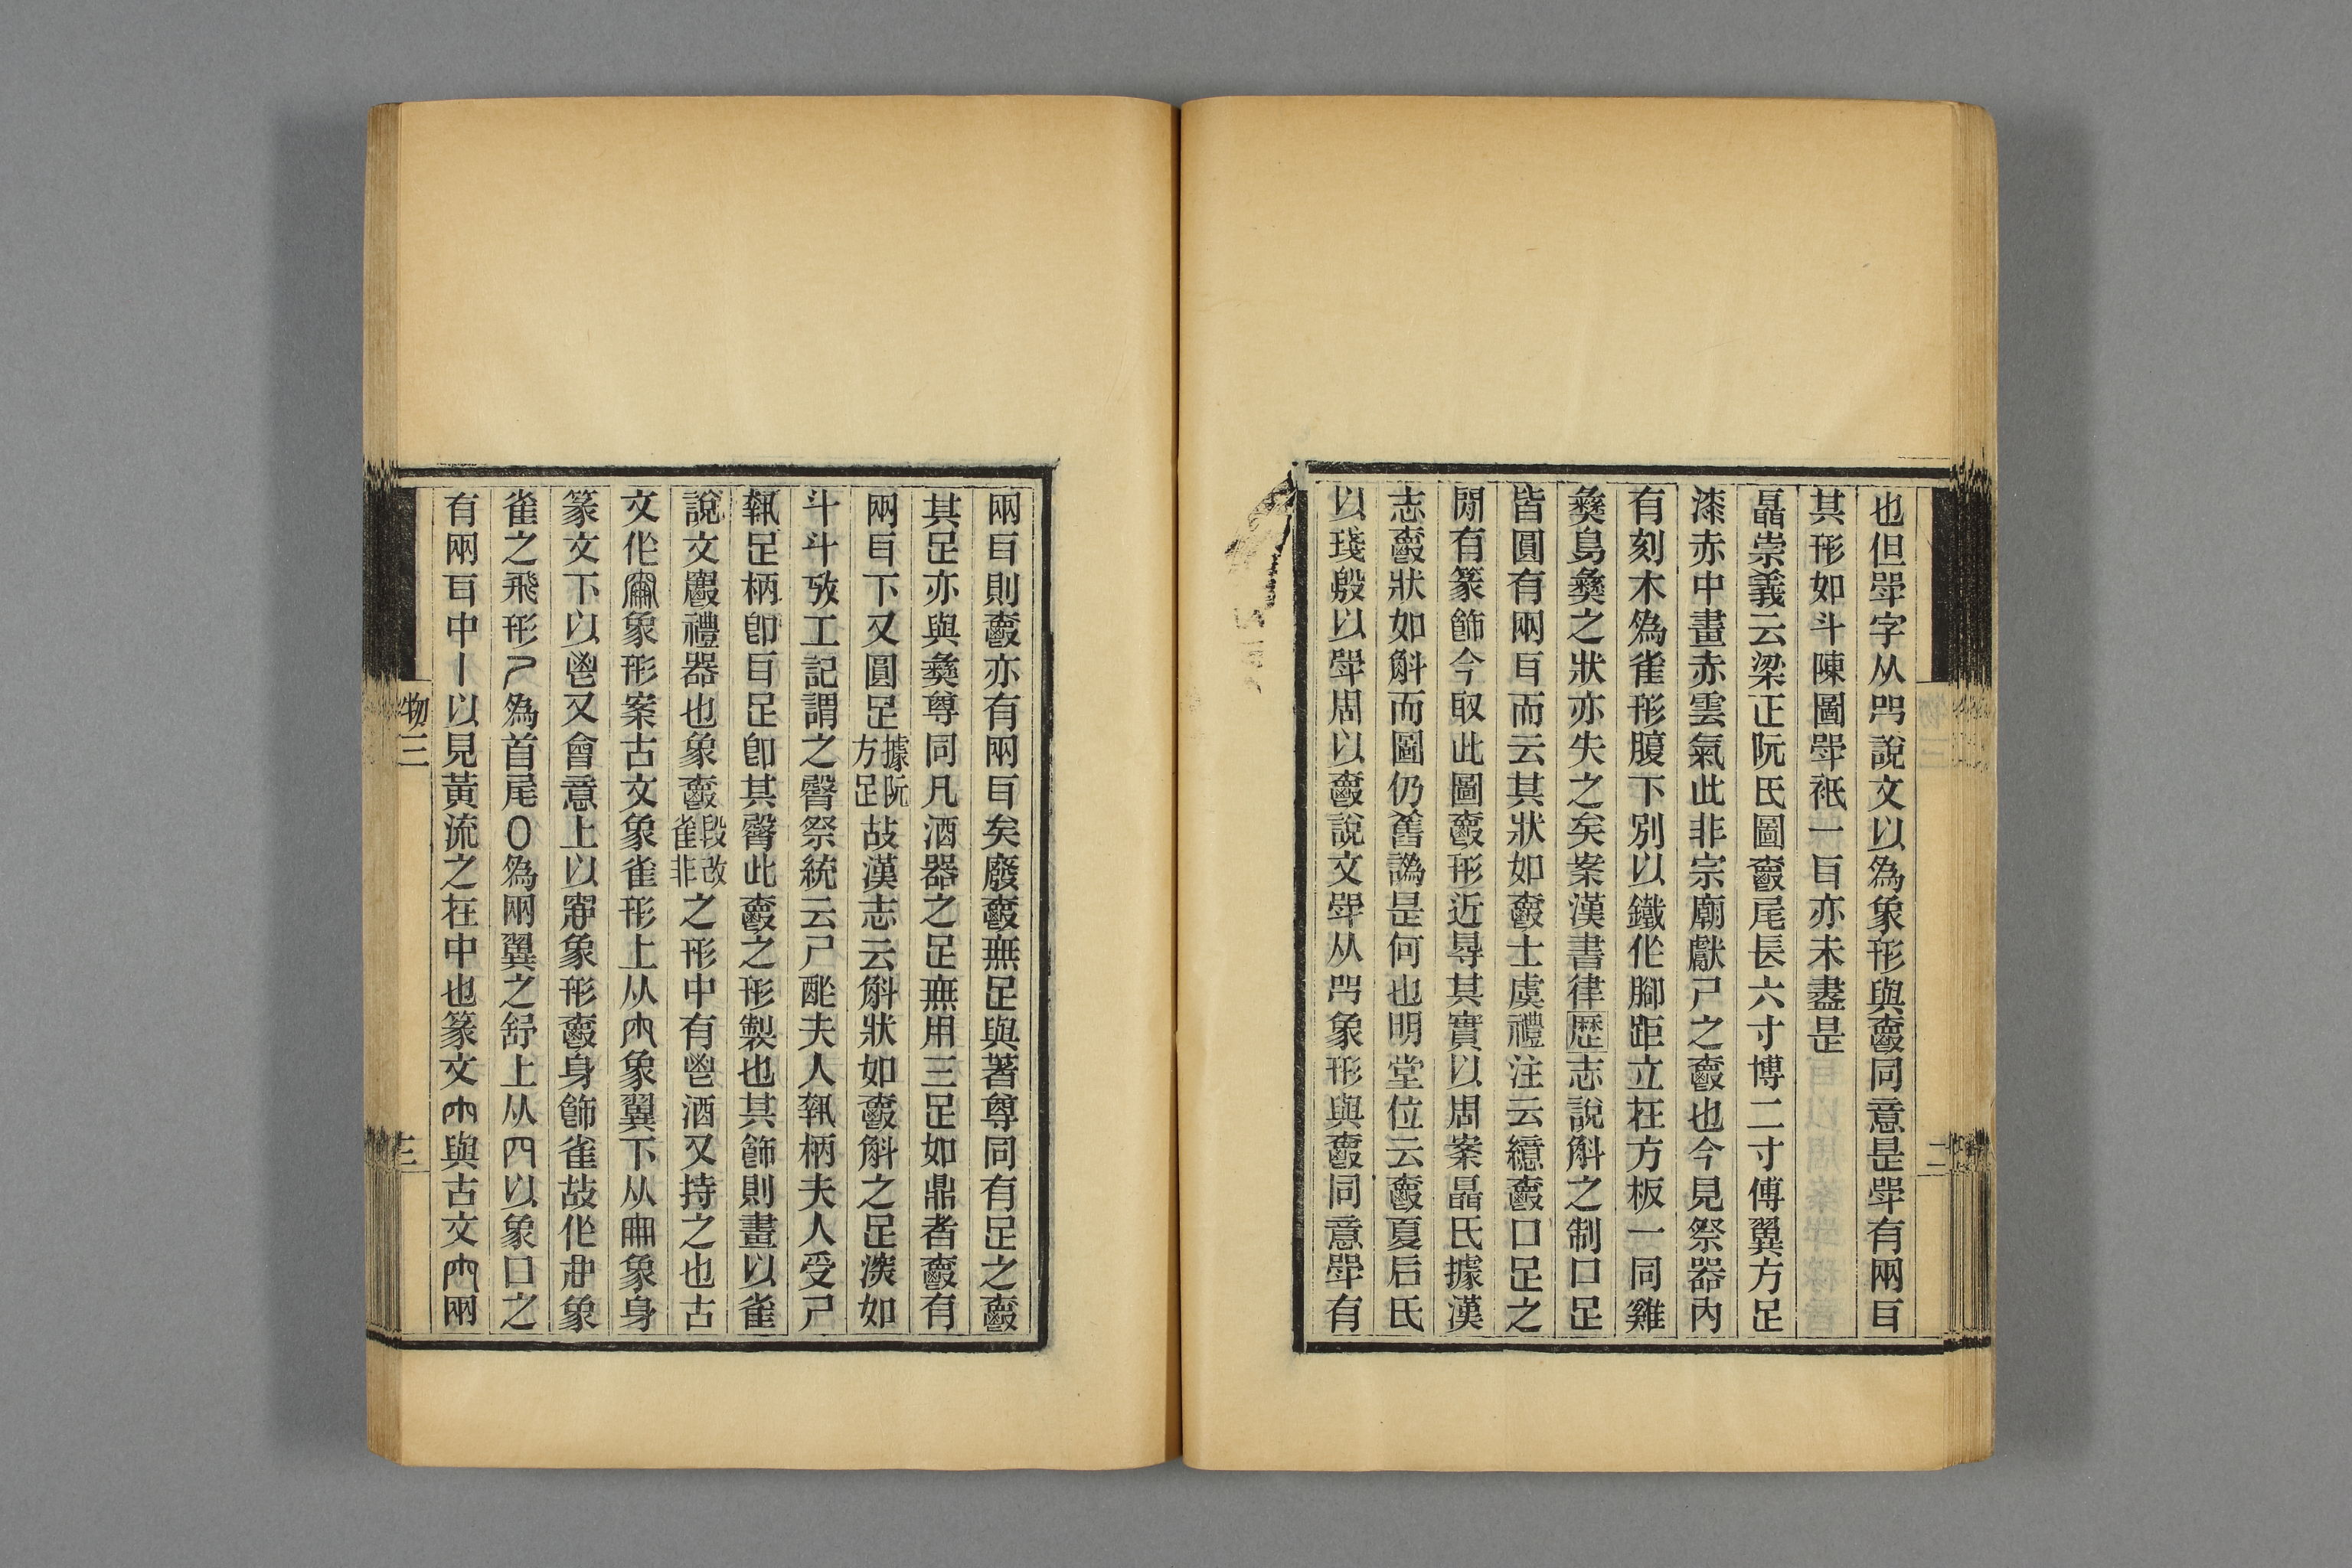 也但斝字从吅說文以為象形與爵同意是斝有兩耳
其形如斗陳圖斝衹一耳亦未盡是
聶崇義云梁正阮氏圖爵尾長六寸博二寸傅翼方足
漆赤中畫赤雲氣此非宗廟獻尸之爵也今見祭器內
有刻木為雀形腹下別以鐵作腳距立在方板一同雞
彝鳥彝之狀亦失之矣案漢書律歷志說斛之制口足
皆圓有兩耳而云其狀如爵士虞禮注云繶爵口足之
閒有篆飾今取此圖爵形近得其實以周案聶氏據漢
志爵狀如斛而圖仍舊譌是何也明堂位云爵夏后氏
以琖殷以斝周以爵說文斝从吅象形與爵同意斝有
兩耳則爵亦有兩耳矣廢爵無足與著尊同有足之爵
其足亦與彝尊同凡酒器之足無用三足如鼎者爵有
兩耳下又圓足據阮方足故漢志云斛狀如爵斛之足淡如
斗斗攷工記謂之臀祭統云尸酢夫人執柄夫人受尸
執足柄卽耳足卽其臀此爵之形製也其飾則畫以雀
說文爵禮器也象爵段改雀非之形中有鬯酒又持之也古
文作象形案古文象雀形上从象翼下从象身
篆文下以鬯又會意上以象形爵身飾雀故作象
雀之飛形為首尾為兩翼之舒上从以象口之
有兩耳中丨以見黃流之在中也篆文與古文兩
物三
十三